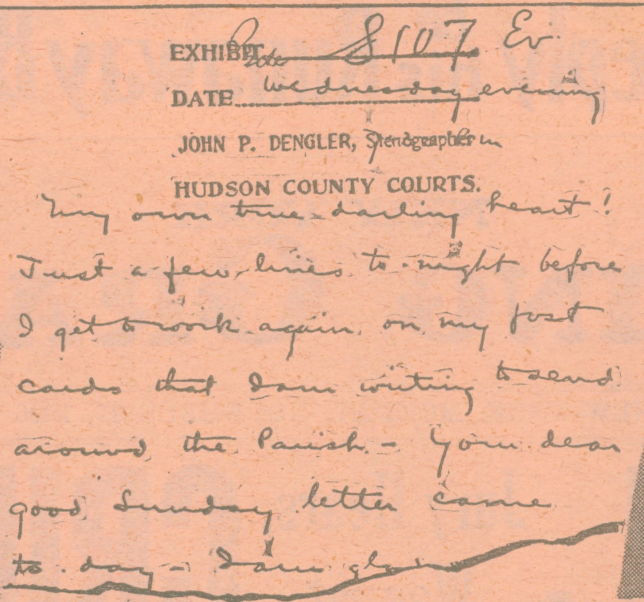 EXHIBIT S107 Ev
DATE Wednesday evening
JOHN P. DENGLER, Stenographer in
HUDSON COUNTY COURTS.
My own true darling heart!
Just a few lines to-night before
I get to work again on my post
cards that I am writing to send
around the Parish - Your dear
good Sunday letter came
to day - I am glad